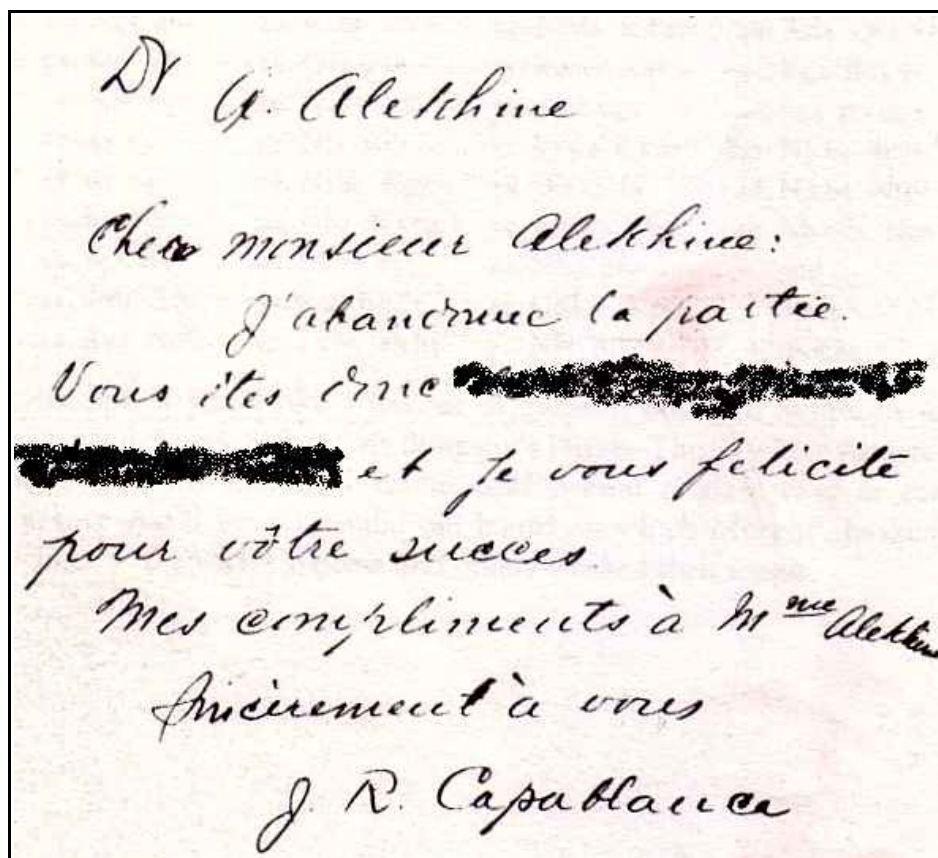 Dr
A. Alekhine
Cher monsieur Alekhine:
J'abandonne la partie.
Vous êtes donc
et je vous félicité
pour vôtre succes.
Mes compliments à Mme Alekhine
Sincèrement à vous
J. R. Capablanca